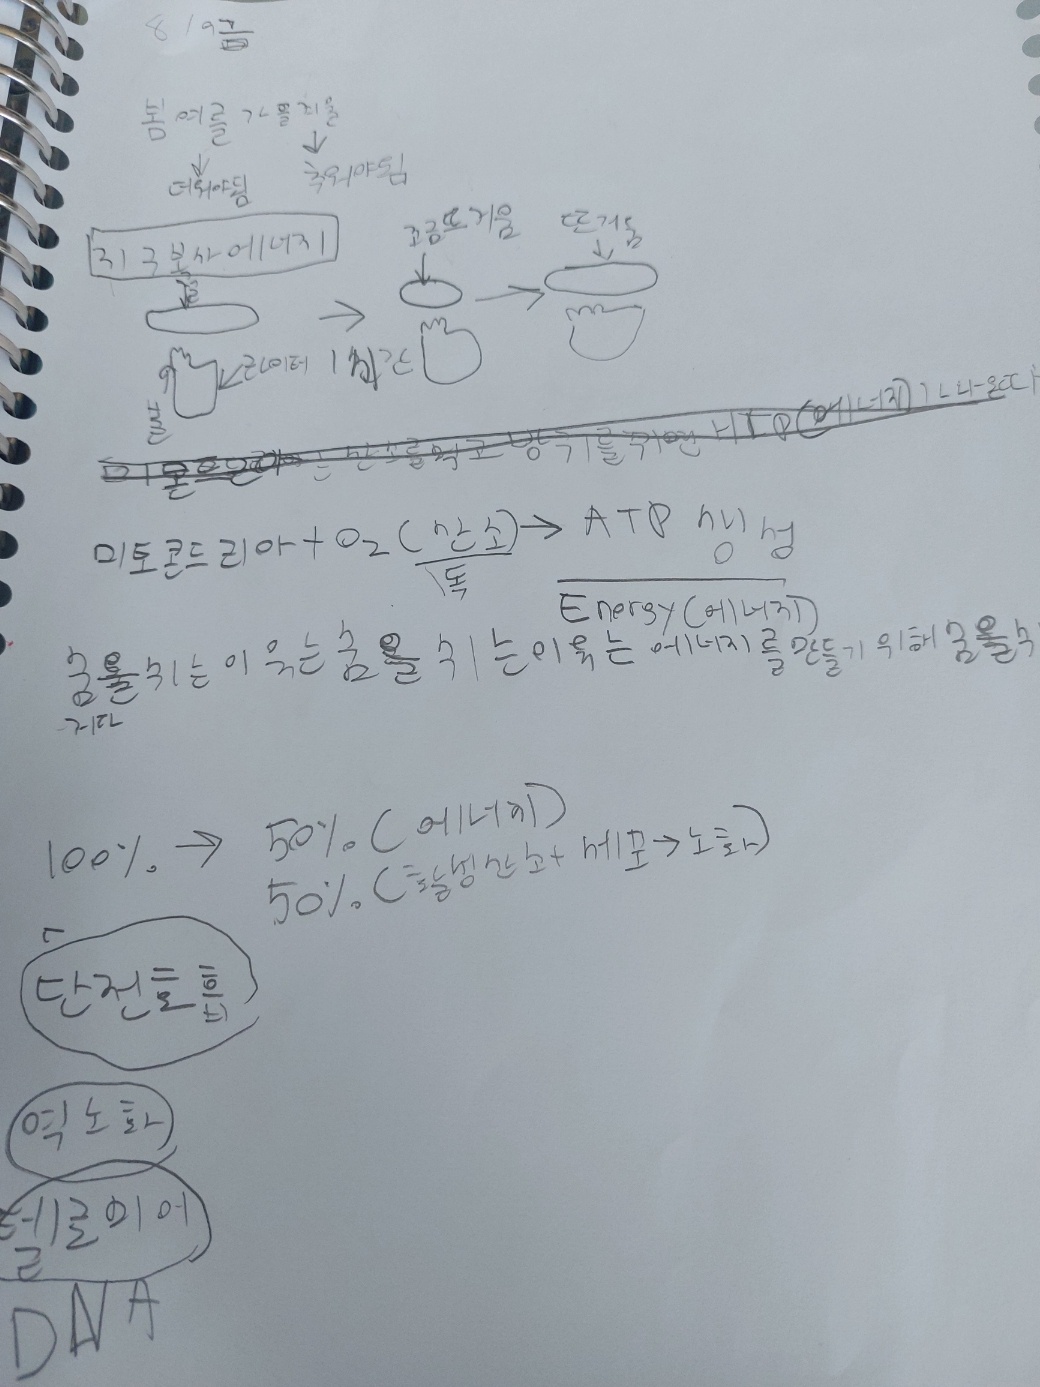 8/9금
봄 여름 가을 겨울
더워야됨 추워야됨
지구복사에너지
조금뜨거움 뜨거움
물
라이터 1시간
불
산소를 먹고 방귀를 뀌면 ATP(에너지)가 나온다
미토콘드리아+O₂(산소)→ ATP 생성
독
Energy(에너지)
숨을쉬는 이유는 숨을 쉬는이유는 에너지를만들기위해 숨을쉬
거다
100%. → 50%.(에너지)
50%.(활성산소+세포→노화)
단전호흡
역노화
텔로미어
DNA